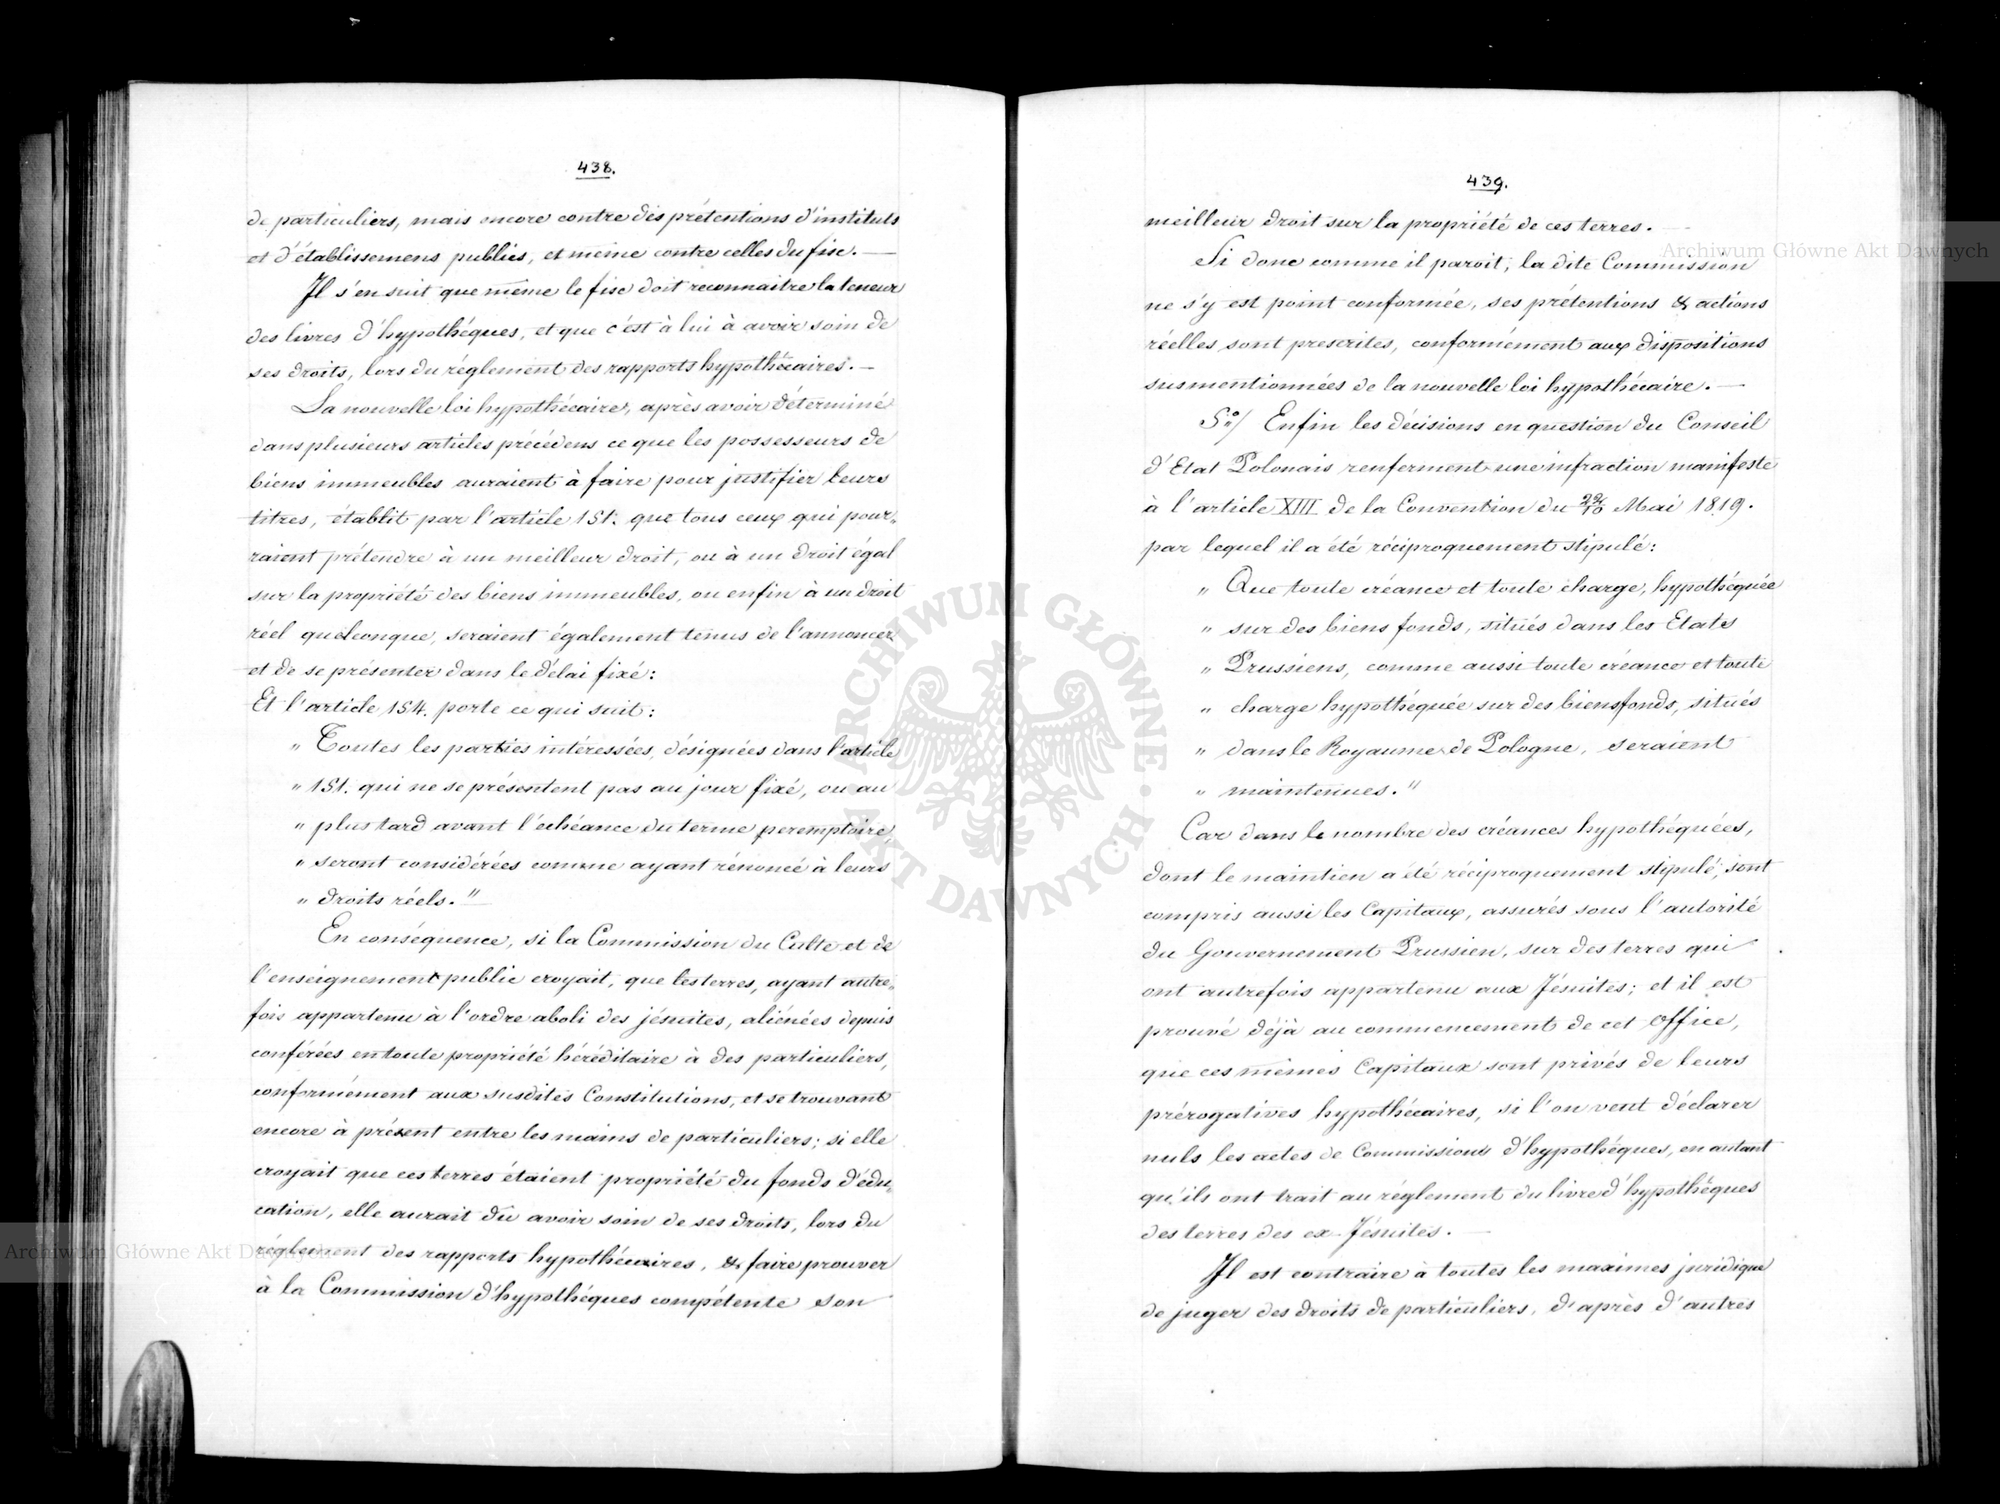 438.
de particuliers, mais encore contre des prétentions d'instituts
et d'établissemens publics, et même contre celles du fisc. —
Il s'en suit que même le fisc doit reconnaitre la teneur
des livres d'hypothéques, et que c'est à lui à avoir soin de
ses droits, lors du réglement des rapports hypothécaires. —
La nouvelle loi hypothécaire, après avoir déterminé
dans plusieurs articles précédens ce que les possesseurs de
biens immeubles auraient à faire pour justifier leurs
titres, établit par l'article 151. que tous ceux qui pour„
raient prétendre à un meilleur droit, ou à un droit égal
sur la propriété des biens immeubles, ou enfin à un droit
réel quelconque, seraient également tenus de l'annoncer
et de se présenter dans le délai fixé:
Et l'article 154. porte ce qui suit:
„ Toutes les parties intéressées, désignées dans l'article
„ 151. qui ne se présentent pas au jour fixé, ou au
„ plus tard avant l'échéance du terme peremptoire,
„ seront considérées comme ayant rénoncé à leurs
„ droits réels." —
En conséquence, si la Commission du Culte et de
l'enseignement public croyait, que les terres, ayant autre„
fois appartenu à l'ordre aboli des jésuites, aliénées depuis
conférées en toute propriété héréditaire à des particuliers,
conformément aux susdites Constitutions, et se trouvant
encore à présent entre les mains de particuliers; si elle
croyait que ces terres étaient propriété du fonds d'édu„
cation, elle aurait dû avoir soin de ses droits, lors du
réglement des rapports hypothécaires, & faire prouver
à la Commission d'hypothéques compétente son
439.
meilleur droit sur la propriété de ces terres. —
Si donc comme il paroit, la dite Commission
ne s'y est point conformée, ses prétentions & actions
réelles sont prescrites, conformément aux dispositions
susmentionnées de la nouvelle loi hypothécaire. —
5º/ Enfin les décisions en question du Conseil
d'Etat Polonais renferment une infraction manifeste
à l'article XIII de la Convention du 22/10 Mai 1819.
par lequel il a été réciproquement stipulé:
„ Que toute créance et toute charge, hypothéquée
„ sur des biens fonds, situés dans les Etats
„ Prussiens, comme aussi toute créance et toute
„ charge hypothéquée sur des biens fonds, situés
„ dans le Royaume de Pologne, seraient
„ maintenues."
Car dans le nombre des créances hypothéquées,
dont le maintien a été réciproquement stipulé, sont
compris aussi les Capitaux, assurés sous l'autorité
du Gouvernement Prussien, sur des terres qui
ont autrefois appartenu aux Jésuites; et il est
prouvé déjà au commencement de cet office,
que ces mêmes Capitaux sont privés de leurs
prérogatives hypothécaires, si l'on veut déclarer
nuls les actes de Commissions d'hypothéques, en autant
qu'ils ont trait au réglement du livre d'hypothéques
des terres des ex-Jésuites. —
Il est contraire à toutes les maximes juridique
de juger des droits de particuliers, d'après d'autres
Archiwum Główne Akt Dawnych
Archiwum Główne Akt Dawnych
ARCHIWUM GŁÓWNE · AKT DAWNYCH ·